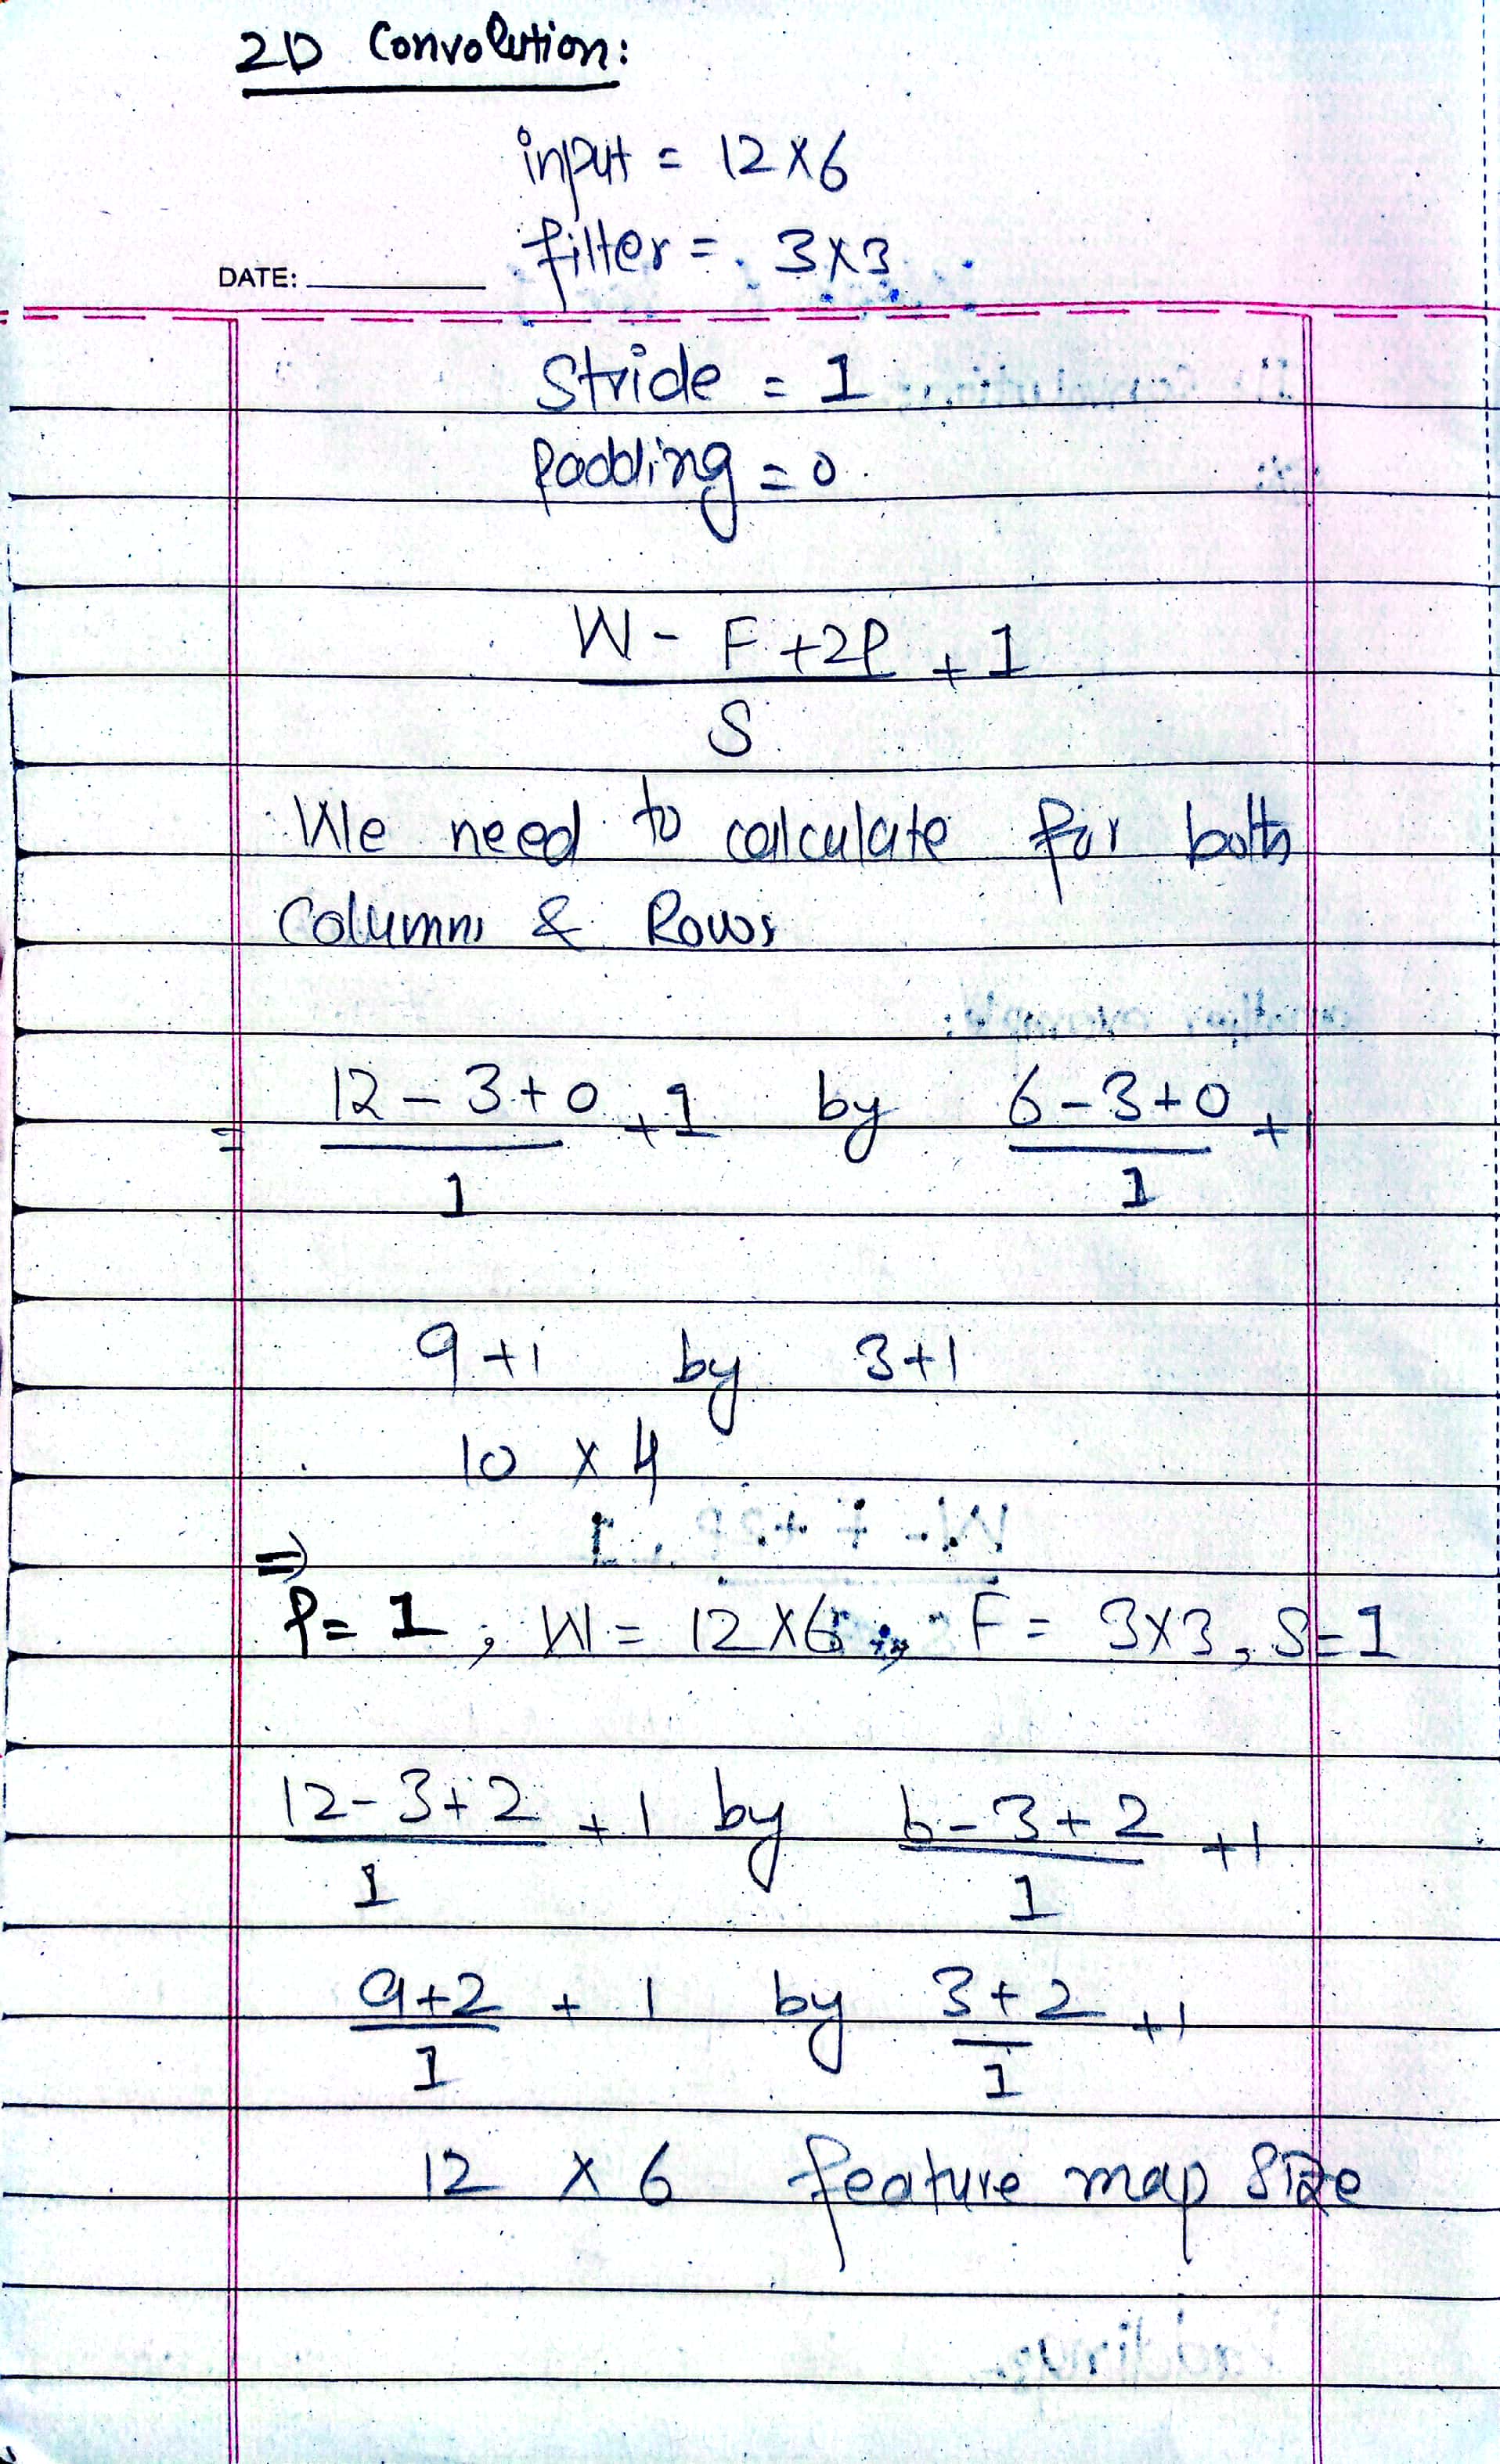 2D Convolution:
input = 12 x 6
filter = 3 x 3
DATE:
Stride = 1
Padding = 0
W - F + 2P + 1
S
We need to calculate for both
Columns & Rows
= 12 - 3 + 0 + 1 by 6 - 3 + 0 + 1
1 1
9 + 1 by 3 + 1
10 x 4
⇒
P = 1 , W = 12 x 6 , F = 3 x 3 , S = 1
12 - 3 + 2 + 1 by 6 - 3 + 2 + 1
1 1
9 + 2 + 1 by 3 + 2 + 1
1 1
12 x 6 feature map size